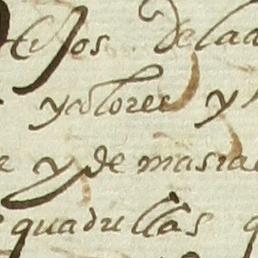 Hijos Dela
ycolores y
y demasia
quadrillas